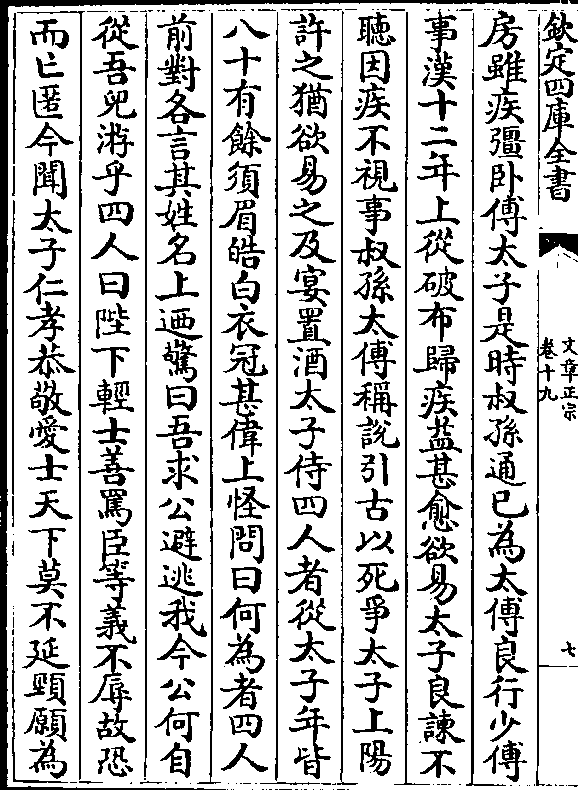 欽定四庫全書
文章正宗
卷十九
七
房雖疾彊卧傅太子是時叔孫通已為太傅良行少傅
事漢十二年上從破布歸疾益甚愈欲易太子良諫不
聽因疾不視事叔孫太傅稱說引古以死爭太子上陽
許之猶欲易之及宴置酒太子侍四人者從太子年皆
八十有餘須眉皓白衣冠甚偉上怪問曰何為者四人
前對各言其姓名上迺驚曰吾求公避逃我今公何自
從吾兒游乎四人曰陛下輕士善罵臣等義不辱故恐
而亡匿今聞太子仁孝恭敬愛士天下莫不延頸願為